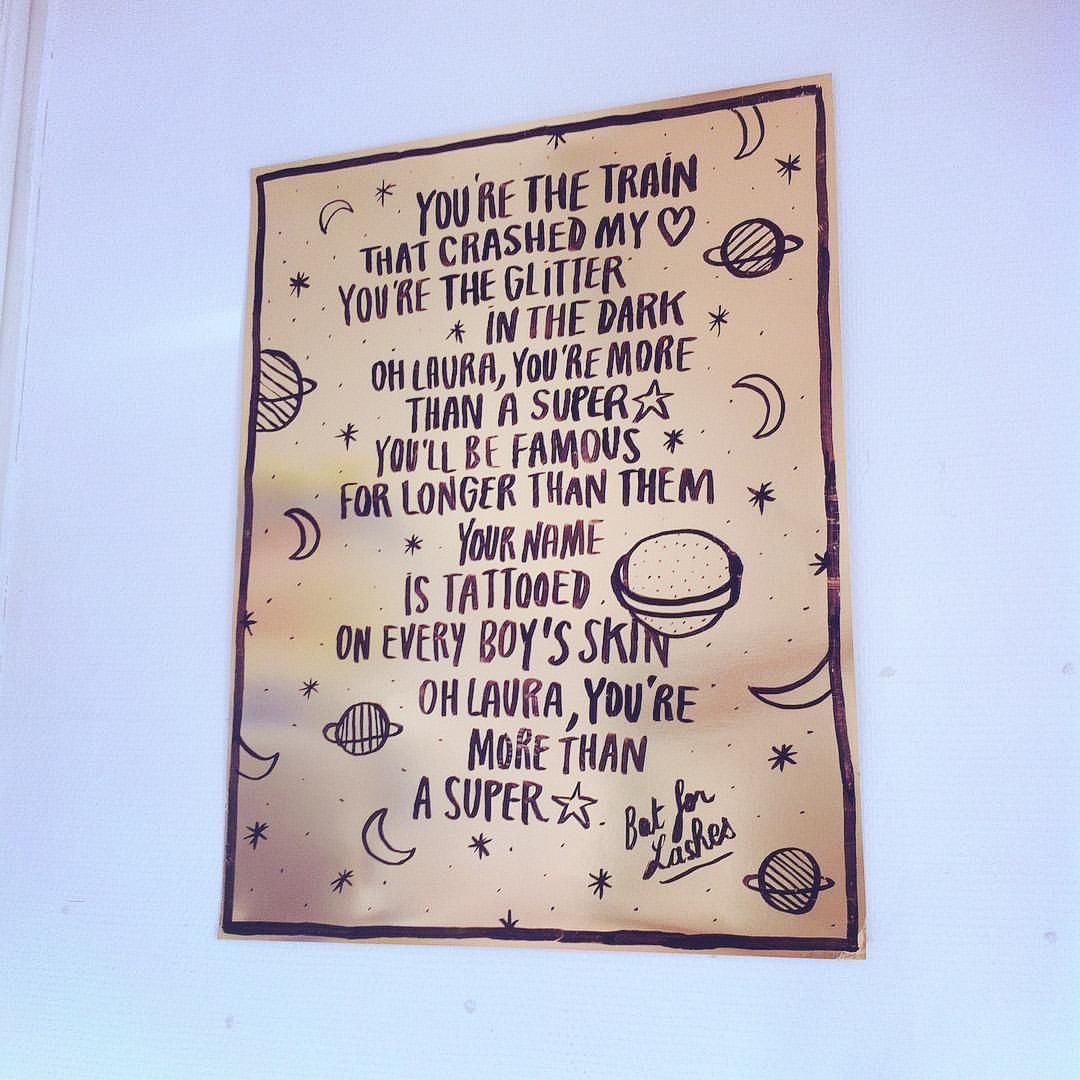 YOU'RE THE TRAIN
THAT CRASHED MY ♡
YOU'RE THE GLITTER
IN THE DARK
OH LAURA, YOU'RE MORE
THAN A SUPER☆
YOU'LL BE FAMOUS
FOR LONGER THAN THEM
YOUR NAME
IS TATTOOED
ON EVERY BOY'S SKIN
OH LAURA, YOU'RE
MORE THAN
A SUPER☆.
Bat for
Lashes